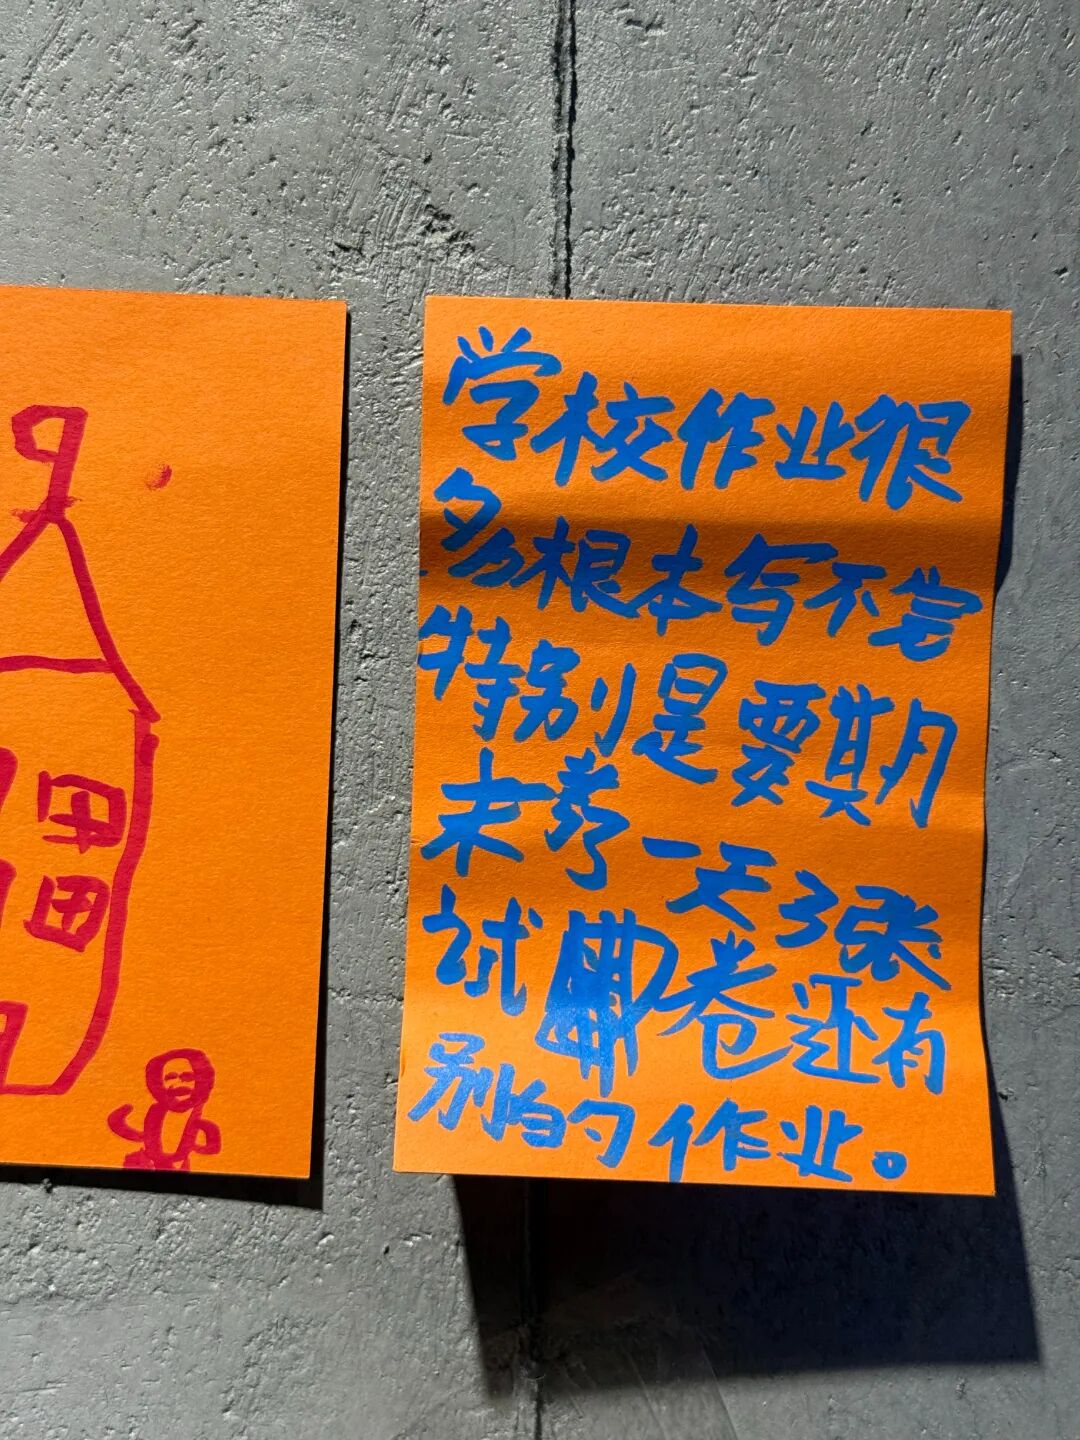 学校作业很
多根本写不完
特别是要期
末考一天3张
试卷还有
别的作业。